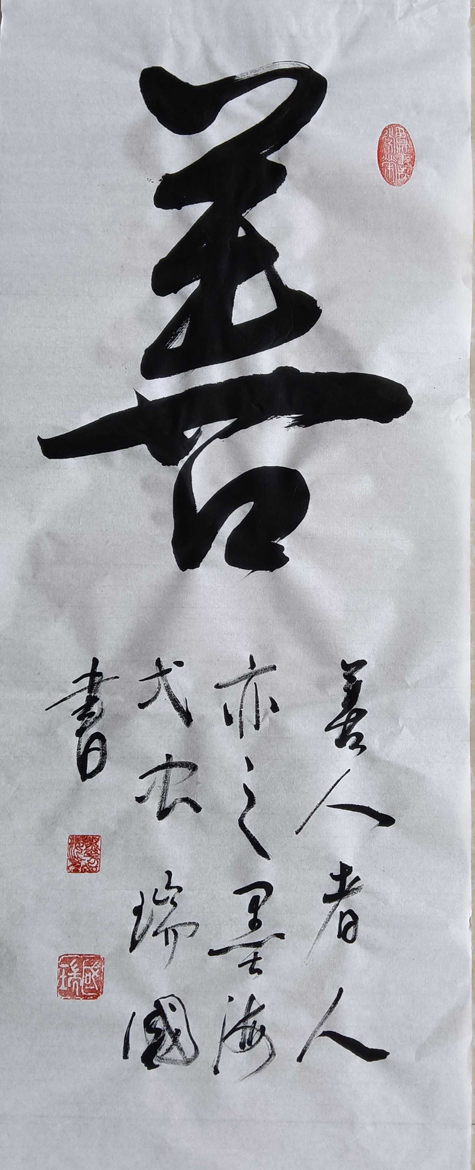 善
善人者人
亦之墨海
瑞國
書